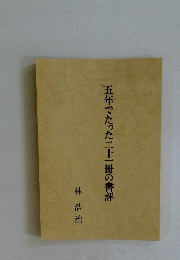 五年でたった二十一冊の書評
林浩治